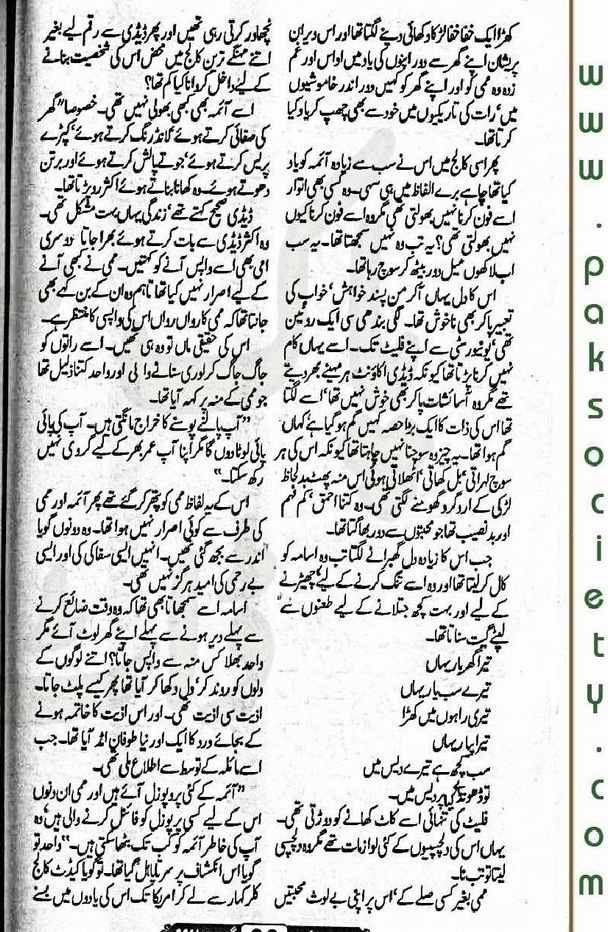 کھڑا ایک خفا خفا لڑکا دکھائی دینے لگتا تھا اور اس ویران
پریشان اپنے گھر سے دور اپنوں کی یاد میں اداس اور غم
زدہ وہ ممی کو اور اپنے گھر کو کہیں دور اندر خاموشیوں
میں، رات کی تاریکیوں میں خود سے بھی چھپ کر یاد کیا
کرتا تھا۔
پھر اسی کالج میں اس نے سب سے زیادہ آئمہ کو یاد
کیا تھا چاہے برے الفاظ میں ہی سہی۔ وہ کسی بھی اتوار
اسے فون کرنا نہیں بھولتی تھی مگر وہ اسے فون کرنا کیوں
نہیں بھولتی تھی؟ یہ تب وہ نہیں سمجھتا تھا۔ یہ سب
اب لاکھوں میل دور بیٹھ کر سوچ رہا تھا۔
اس کا دل یہاں آ کر من پسند خواہش، خواب کی
تعبیر پا کر بھی ناخوش تھا۔ لگی بندھی سی ایک روٹین
تھی، یونیورسٹی سے اپنے فلیٹ تک۔ اسے یہاں کام
نہیں کرنا پڑتا تھا کیونکہ ڈیڈی اکاؤنٹ ہر مہینے بھر دیتے
تھے مگر وہ آسائشات پا کر بھی خوش نہیں تھا، اسے لگتا
تھا اس کی ذات کا ایک بڑا حصہ کہیں گم ہو گیا ہے کہاں
گم ہوا تھا۔ یہ چیز وہ سوچنا نہیں چاہتا تھا کیونکہ اس کی ہر
سوچ لہراتی، بل کھاتی، اٹھلاتی ہوئی اس منہ پھٹ بد لحاظ
لڑکی کے ارد گرد گھومنے لگتی تھی۔ وہ کتنا احمق، کم فہم
اور بد نصیب تھا جو محبتوں سے دور بھاگتا تھا۔
جب اس کا زیادہ دل گھبرانے لگتا تب وہ اسامہ کو
کال کر لیتا تھا اور وہ اسے تنگ کرنے کے لیے، چھیڑنے
کے لیے اور بہت کچھ جتلانے کے لیے طعنوں سے
لپٹے گیت سناتا تھا۔
تیرا گھر بار یہاں
تیرے سب یار یہاں
تیری راہوں میں کھڑا
تیرا پیار یہاں
سب کچھ ہے تیرے دیس میں
تو ڈھونڈے کیا پردیس میں۔
فلیٹ کی تنہائی اسے کاٹ کھانے کو دوڑتی تھی۔
یہاں اس کی دلچسپیوں کے کئی لوازمات تھے مگر وہ دلچسپی
لیتا تو تب نا۔
ممی بغیر کسی صلے کے، اس پر اپنی بے لوث محبتیں
نچھاور کرتی رہی تھیں اور پھر ڈیڈی سے رقم لیے بغیر
اتنے مہنگے ترین کالج میں محض اس کی شخصیت بنانے
کے لیے داخل کروانا کیا کم تھا؟
اسے آئمہ بھی کبھی بھولی نہیں تھی۔ خصوصا" گھر
کی صفائی کرتے ہوئے، لانڈرنگ کرتے ہوئے، کپڑے
پریس کرتے ہوئے، جوتے پالش کرتے ہوئے اور برتن
دھوتے ہوئے۔ وہ کھانا بناتے ہوئے اکثر رو پڑتا تھا۔
ڈیڈی صحیح کہتے تھے، زندگی یہاں بہت مشکل تھی۔
وہ اکثر ڈیڈی سے بات کرتے ہوئے بھرا جاتا، دوسری
امی بھی اسے واپس آنے کو کہتیں۔ ممی نے کبھی آنے
کے لیے اصرار نہیں کیا تھا تاہم وہ ان کے بن کہے بھی
جانتا تھا کہ ممی کا رواں رواں اس کی واپسی کا منتظر ہے۔
اس کی حقیقی ماں تو وہ ہی تھیں۔ اسے راتوں کو
جاگ جاگ کر لوری سنانے والی اور واحد کتنا ذلیل تھا
جو ممی کے منہ پر کہہ آیا تھا۔
"آپ پالنے پوسنے کا خراج مانگتی ہیں۔ آپ کی پائی
پائی لوٹا دوں گا مگر اپنا آپ عمر بھر کے لیے گروی نہیں
رکھ سکتا۔"
اس کے یہ لفاظ ممی کو پتھر کر گئے تھے پھر آئمہ اور ممی
کی طرف سے کوئی اصرار نہیں ہوا تھا۔ وہ دونوں گویا
اندر سے بجھ گئی تھیں۔ انہیں ایسی سفاکی کی اور ایسی
بے رحمی کی امید ہرگز نہیں تھی۔
اسامہ اسے سمجھاتا بھی تھا کہ وہ وقت ضائع کرنے
سے پہلے دیر ہونے سے پہلے اپنے گھر لوٹ آئے مگر
واحد بھلا کس منہ سے واپس جاتا؟ اتنے لوگوں کے
دلوں کو روند کر، دل دکھا کر آیا تھا پھر کیسے پلٹ جاتا۔
اذیت سی اذیت تھی۔ اور اس اذیت کا خاتمہ ہونے
کے بجائے درد کا ایک اور نیا طوفان اٹھ آیا تھا۔ جب
اسے نائلہ کے توسط سے اطلاع ملی تھی۔
"آئمہ کے کئی پروپوزل آئے ہیں اور ممی ان دنوں
اس کے لیے کسی پروپوزل کو فائنل کرنے والی ہیں، وہ
آپ کی خاطر آئمہ کو کب تک بٹھا سکتی ہیں۔" واحد تو
گویا اس انکشاف پر سرتاپا ہل گیا تھا۔ تو گویا کیڈٹ کالج
کلر کہار سے لے کر امریکا تک اس کی یادوں میں بسنے
www.paksociety.com